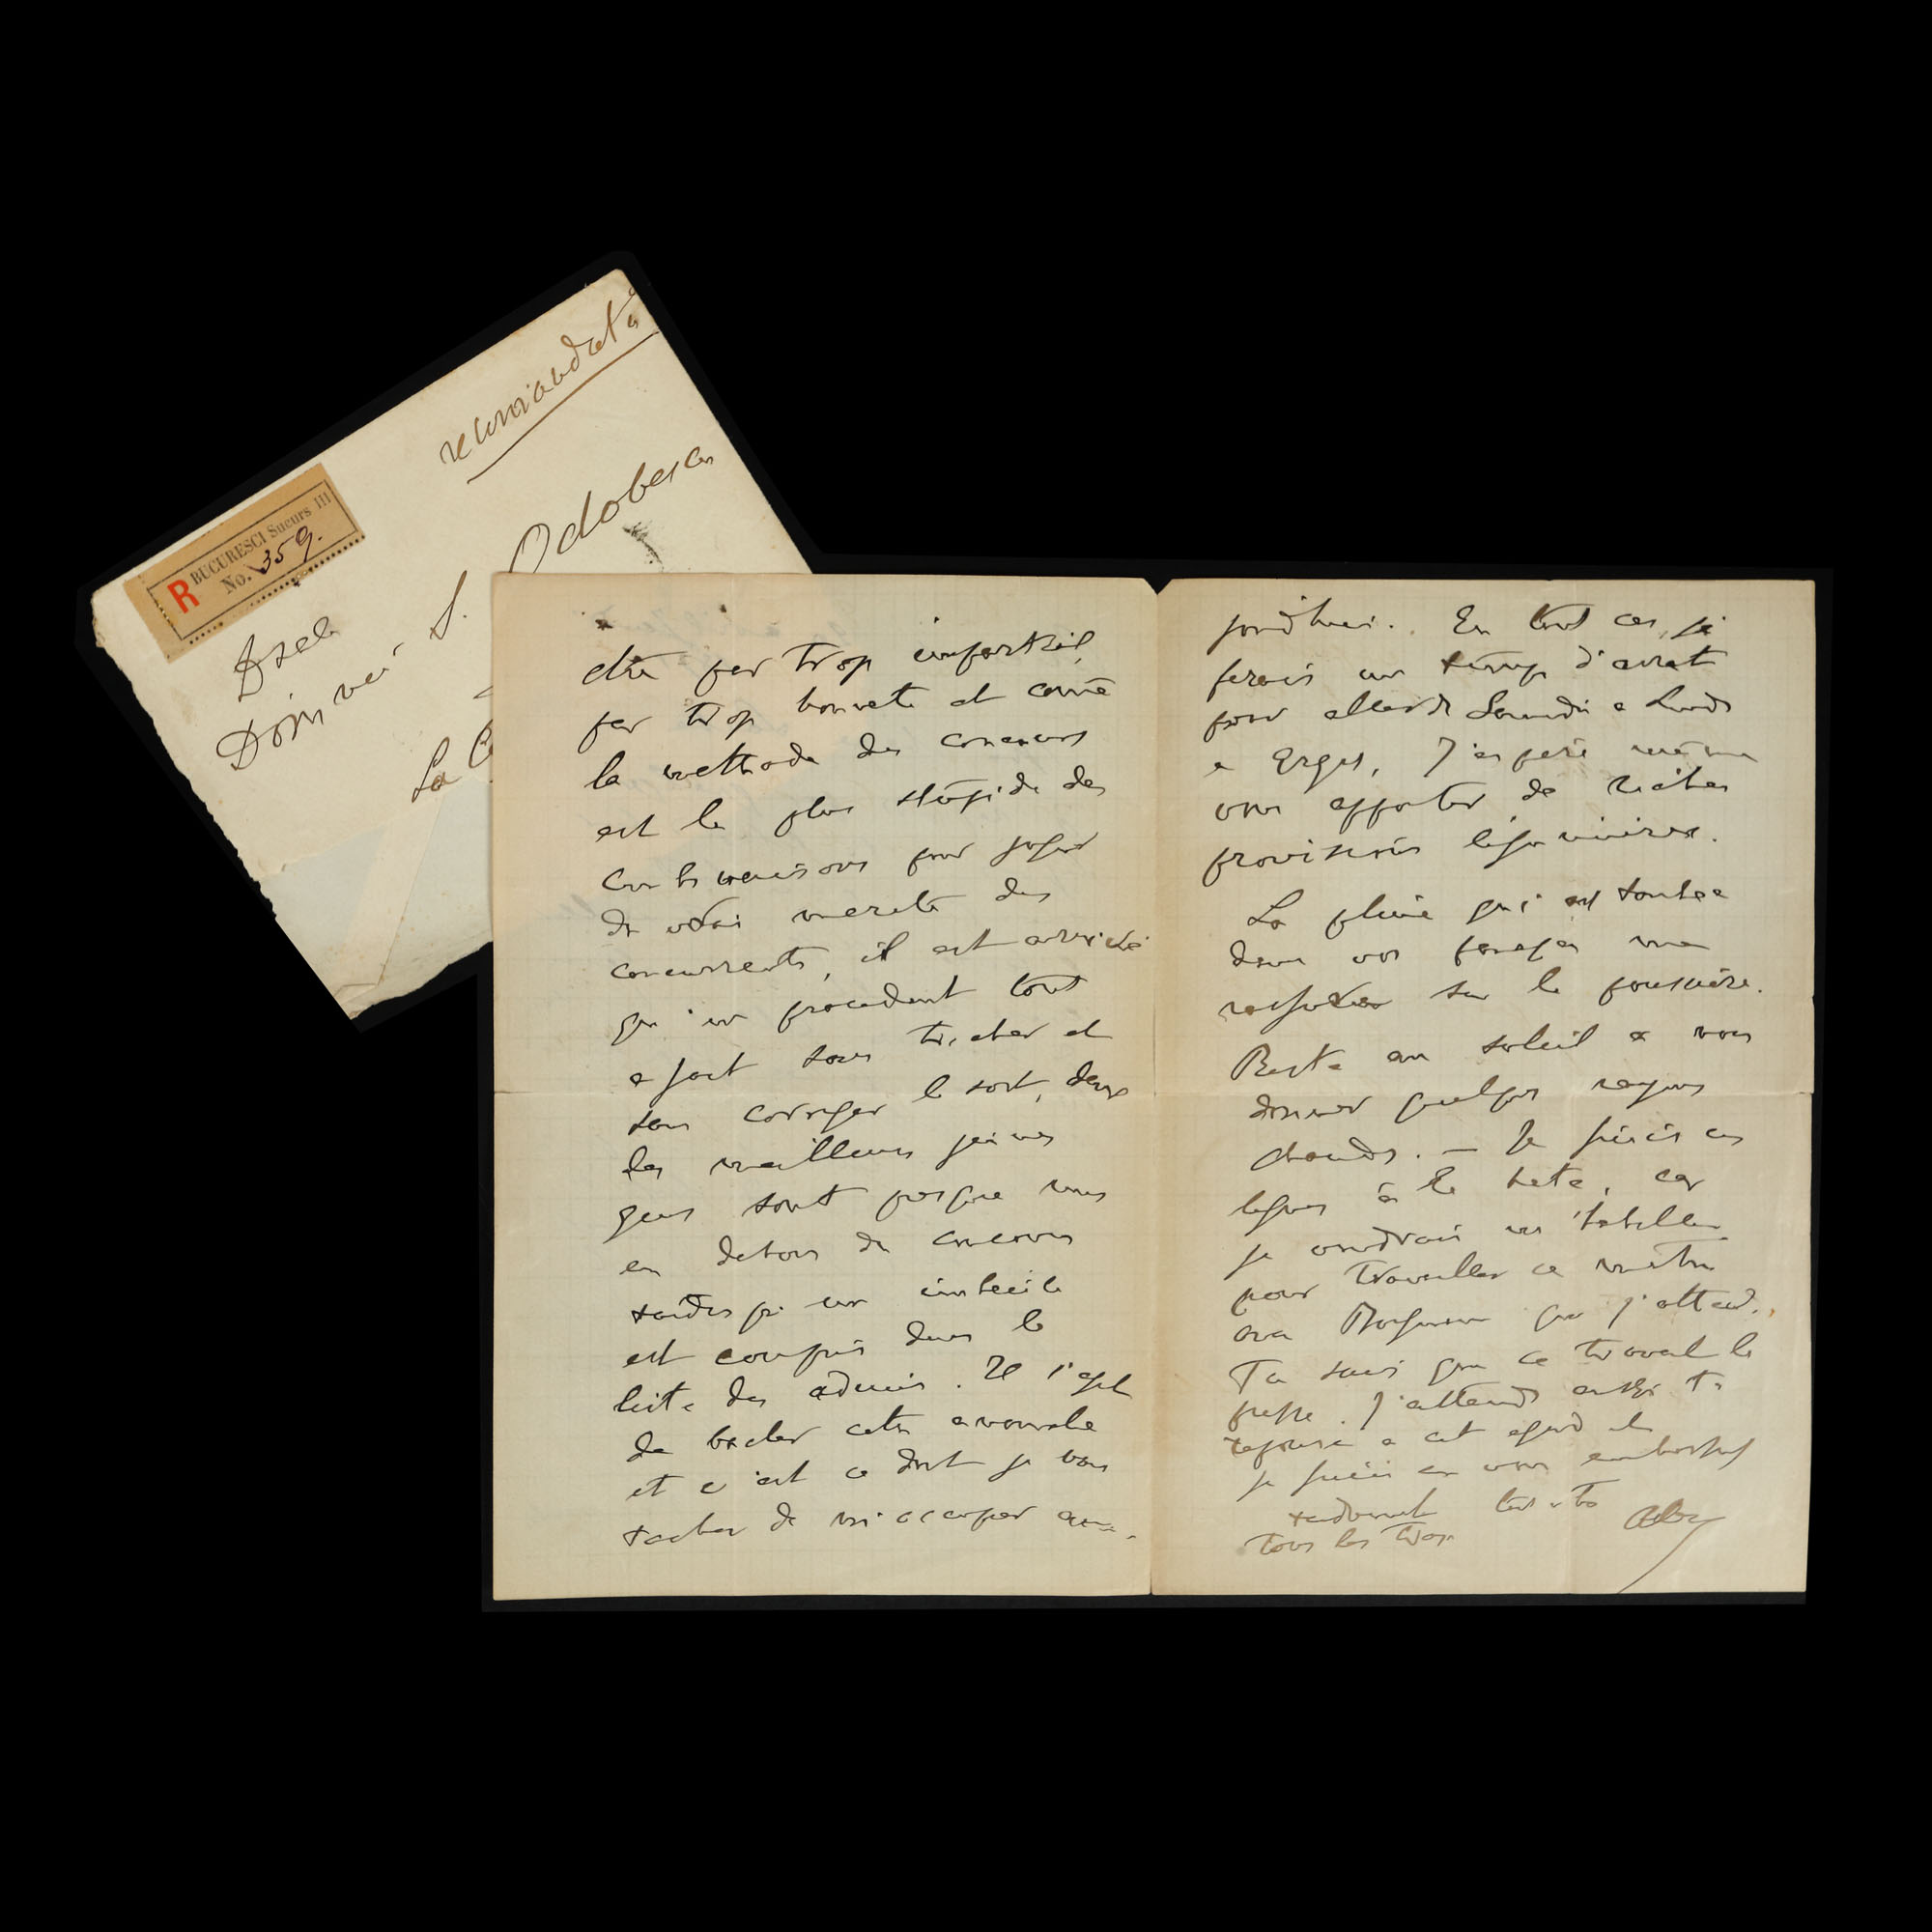 recomandata
R BUCURESCI Sucurs III
No. 359.
Dsale
Domnei S. Odobescu
La
être par trop impartial,
par trop honnete et come
la methode des concours
est la plus stupide des
combinaisons pour juger
du vrai merite des
concurrents, il est arrivé
qu'en procedant tout
a fait sans tricher et
sans corriger le sort, deux
des meilleurs jeunes
gens sont presque mis
en dehors du concours
tandis qu'un imbecile
est compris dans la
liste des admis. Il s'agit
de bacler cette
et c'est ce dont je vais
tacher de m'occuper au-
jourd'hui. En tout cas, je
ferais un temps d'arret
pour aller de Samedi a Lundi
a Erges, J'espère même
vous apporter de riches
provisions
La pluie qui est tombée
dans vos parages me
rassure sur la poussière.
Reste au soleil a vous
donner quelques rayons
chauds. — Je finis ces
lignes à la hate, car
je voudrais m'habiller
pour travailler ce matin
avec que j'attend.
Tu sais que ce travail le
presse. J'attends aussi ta
reponse a cet egard et
je finis en vous embrassant
tendrement
tous les trois Alex